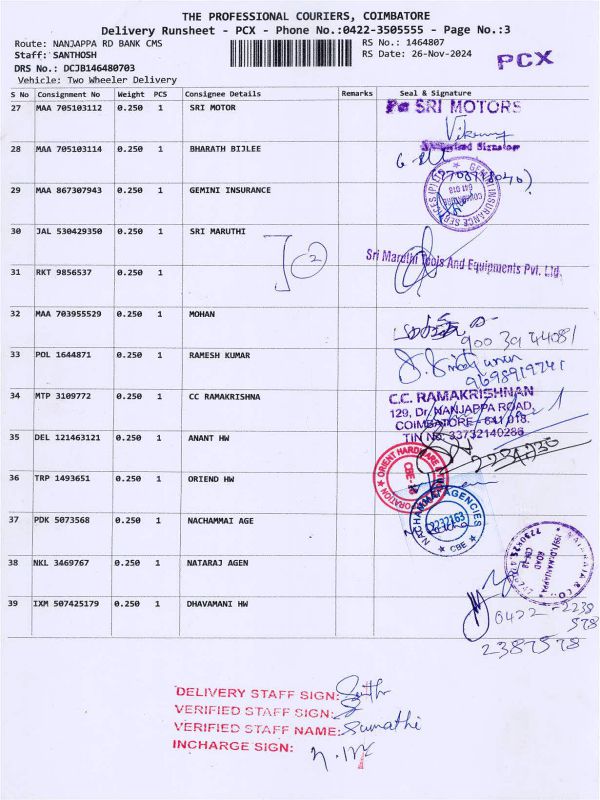 THE PROFESSIONAL COURIERS, COIMBATORE
Delivery Runsheet - PCX - Phone No.:0422-3505555 - Page No.:3
Route: NANJAPPA RD BANK CMS
RS No.: 1464807
Staff: SANTHOSH
RS Date: 26-Nov-2024
PCX
DRS No.: DCJB146480703
Vehicle: Two Wheeler Delivery
S No Consignment No Weight PCS Consignee Details Remarks Seal & Signature
27 MAA 705103112 0.250 1 SRI MOTOR
SRI MOTORS
28 MAA 705103114 0.250 1 BHARATH BIJLEE
29 MAA 867307943 0.250 1 GEMINI INSURANCE
30 JAL 530429350 0.250 1 SRI MARUTHI
2
Sri Maruthi Tools And Equipments Pvt. Ltd.
31 RKT 9856537 0.250 1
32 MAA 703955529 0.250 1 MOHAN
900 39 44081
33 POL 1644871 0.250 1 RAMESH KUMAR
9698919741
34 MTP 3109772 0.250 1 CC RAMAKRISHNA
C.C. RAMAKRISHNAN
129, Dr. NANJAPPA ROAD,
COIMBATORE - 641 018.
TIN No: 33732140286
35 DEL 121463121 0.250 1 ANANT HW
36 TRP 1493651 0.250 1 ORIEND HW
ORIENT HARDWARE
CBE-18
37 PDK 5073568 0.250 1 NACHAMMAI AGE
NACHAMMAI AGENCIES
2232163
CBE
38 NKL 3469767 0.250 1 NATARAJ AGEN
NATARAJA & CO
39 IXM 507425179 0.250 1 DHAVAMANI HW
0422 - 2238
578
2387578
DELIVERY STAFF SIGN:
VERIFIED STAFF SIGN:
VERIFIED STAFF NAME: Sumathi
INCHARGE SIGN: